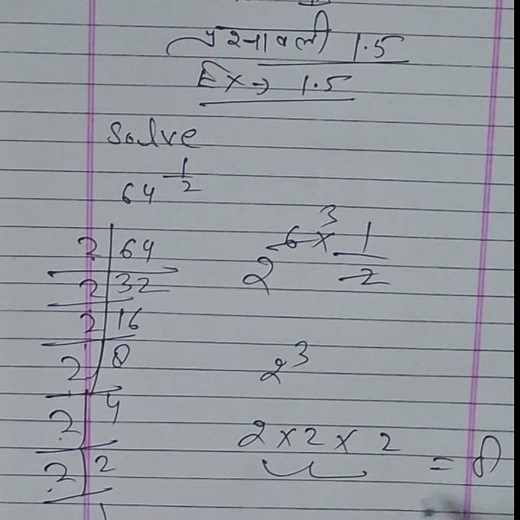 प्रश्नावली 1.5
Ex→ 1.5
Solve
64^{1/2}
2 | 64
2 | 32
2 | 16
2 | 8
2 | 4
2 | 2
1
2^{6×1/2} 3
2^3
2 × 2 × 2 = 8